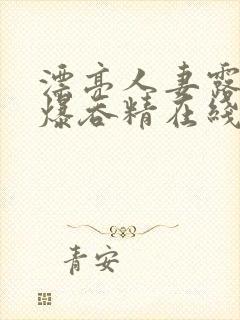 漂亮人妻露
爆吞精在线
青安